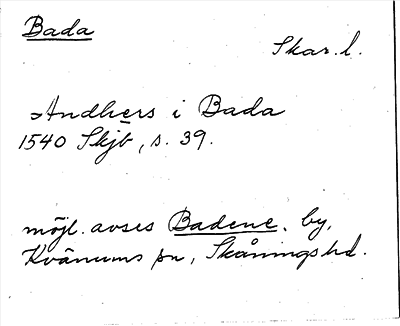 Bada
Skar. l.
Andhers i Bada
1540 Skjb, s. 39.
möjl. avses Badene, by,
Kvänums sn, Skånings hd.